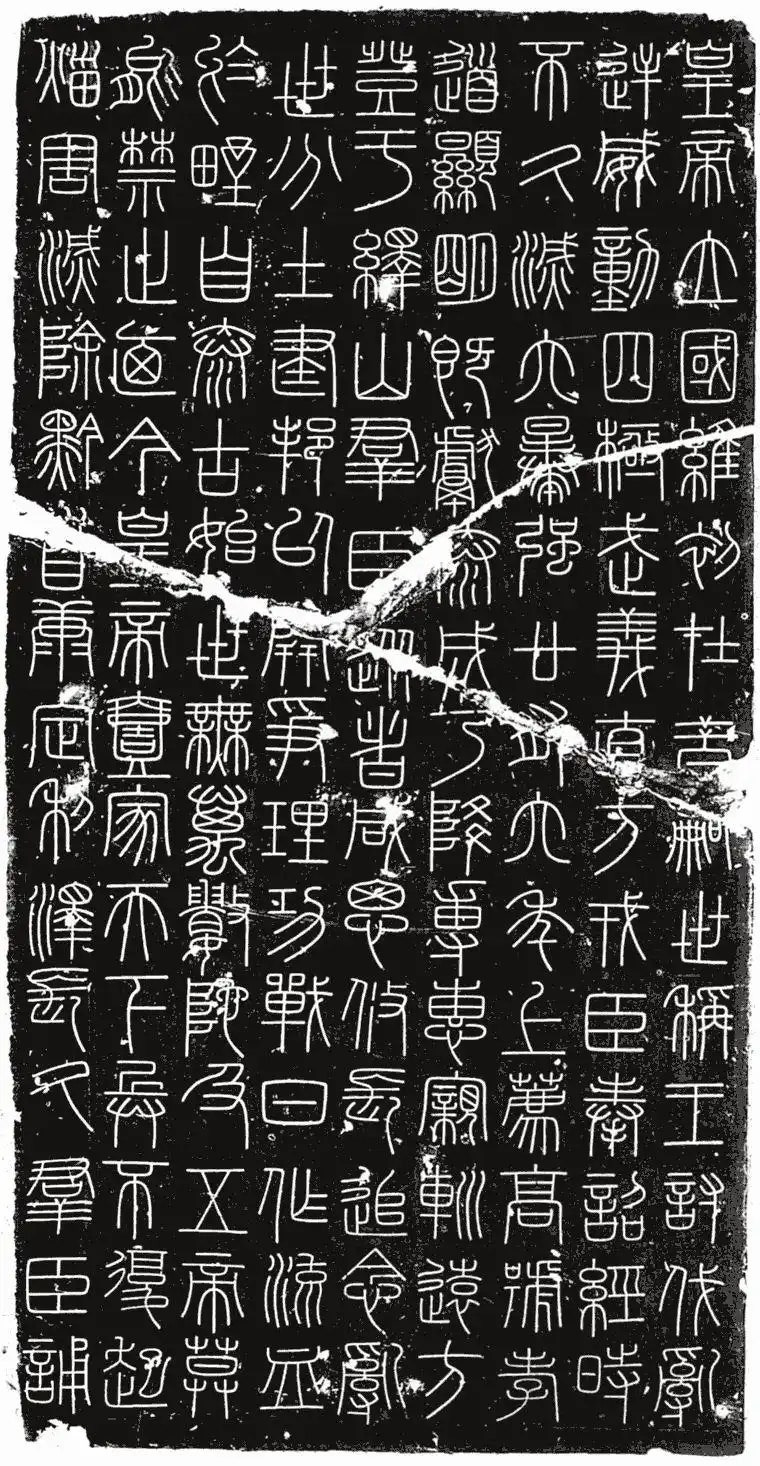 皇帝立國維初在昔嗣世稱王討伐亂
逆威動四極武義直方戎臣奉詔經時
不久滅六暴强廿有六年上薦高號孝
道顯明既獻泰成乃降專惠寴巡遠方
登于繹山羣臣從者咸思攸長追念亂
世分土建邦以開爭理功戰日作流血
於野自泰古始世無萬數陀及五帝莫
能禁止廼今皇帝壹家天下兵不復起
災害滅除黔首康定利澤長久羣臣誦